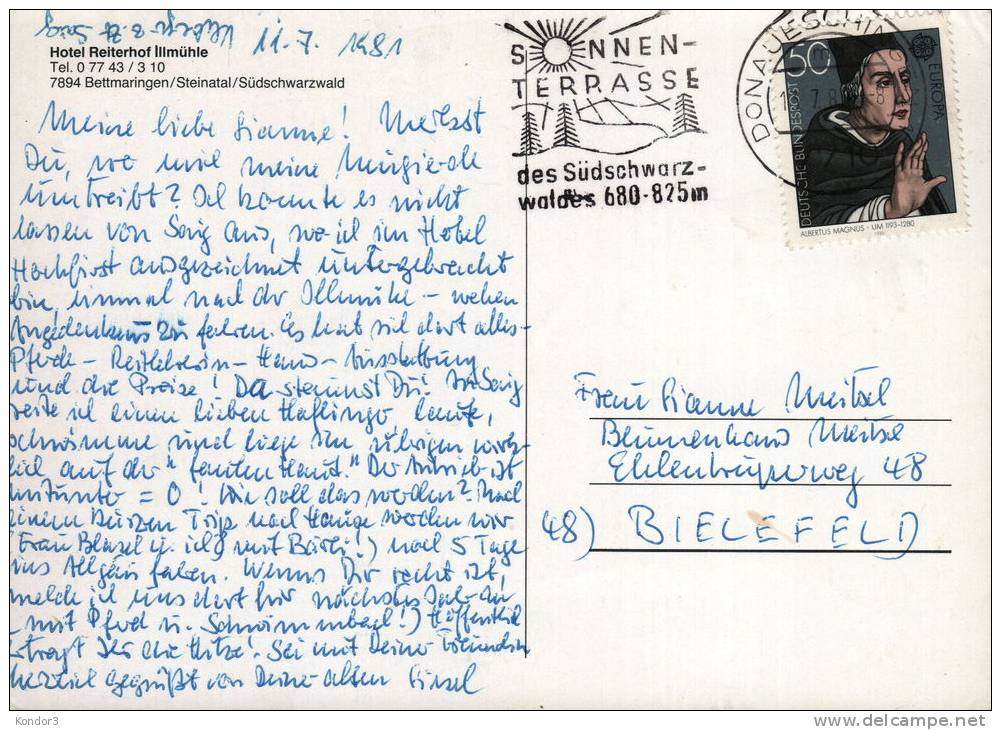 11.7.1981
Hotel Reiterhof Illmühle
Tel. 0 77 43 / 3 10
7894 Bettmaringen/Steinatal/Südschwarzwald
Meine liebe Gianne! Merkst
Du, wo mich meine Neugierde
umtreibt? Ich konnte es nicht
lassen von Saig aus, wo ich im Hotel
Hochfirst ausgezeichnet untergebracht
bin, einmal nach der Illmühle -
Angedenkens zu fahren. Es hat sich dort alles -
Pferde - Reitlehrerin - Haus - Ausstattung
und die Preise! Da staunst Du! In Saig
reite ich einen lieben Haflinger heute,
schwimme und liege im übrigen wirk-
lich auf der "faulen Haut." Der Antrieb ist
mitunter = 0! Wie soll das werden? Nach
einem kurzen Trip nach Hause werden wir
(Frau Blasel u. ich mit Bärli!) noch 5 Tage
ins Allgäu fahren. Wenns Dir recht ist,
melde ich uns dort für nächstes Jahr an
- mit Pferd u. Schwimmbad!) Hoffentlich
tragt Ihr die Hitze! Sei mit Deiner Freundin
herzlich gegrüßt von Deiner alten Gisel
SONNEN-
TERRASSE
des Südschwarz-
waldes 680-825m
DONAUESCHING
50
EUROPA
DEUTSCHE BUNDESPOST
ALBERTUS MAGNUS · UM 1193-1280
Frau Gianne Meisel
Blumenhaus Meisel
48
48) BIELEFELD
Kondor3
delcampe.net